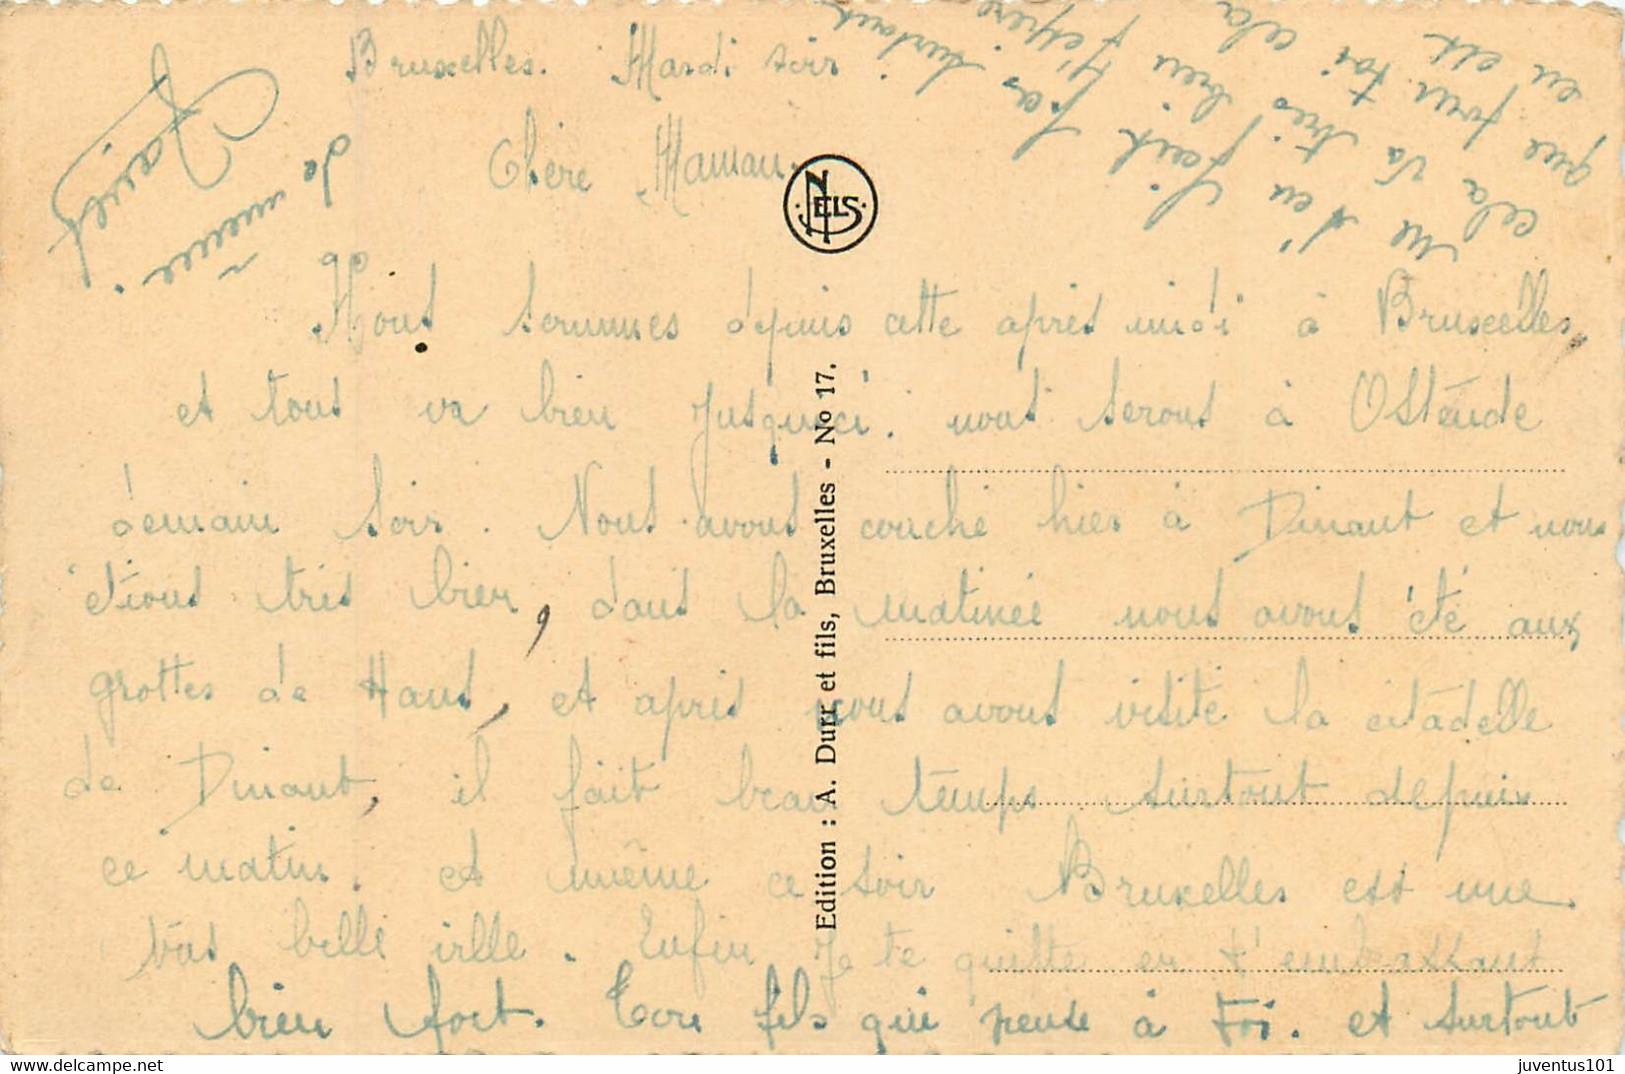 Bruxelles. Mardi soir
Chère Maman.
Nous sommes depuis cette après midi à Bruxelles,
et tous va bien jusqu'ici. nous serons à Ostende
demain soir. Nous avons couché hier à Dinant et nous
étions très bien, dans la matinée nous avons été aux
grottes de Hans, et après nous avons visité la citadelle
de Dinant, il fait beau temps surtout depuis
ce matin. et même ce soir Bruxelles est une
très belle ville. Enfin Je te quitte en t'embrassant
bien fort. Ton fils qui pense à toi. et surtout
ne t'en fait pas surtout
cela va très bien J'espère
que pour toi cela
en est
de même.
NELS
Edition : A. Durr et fils, Bruxelles - No 17.
juventus101